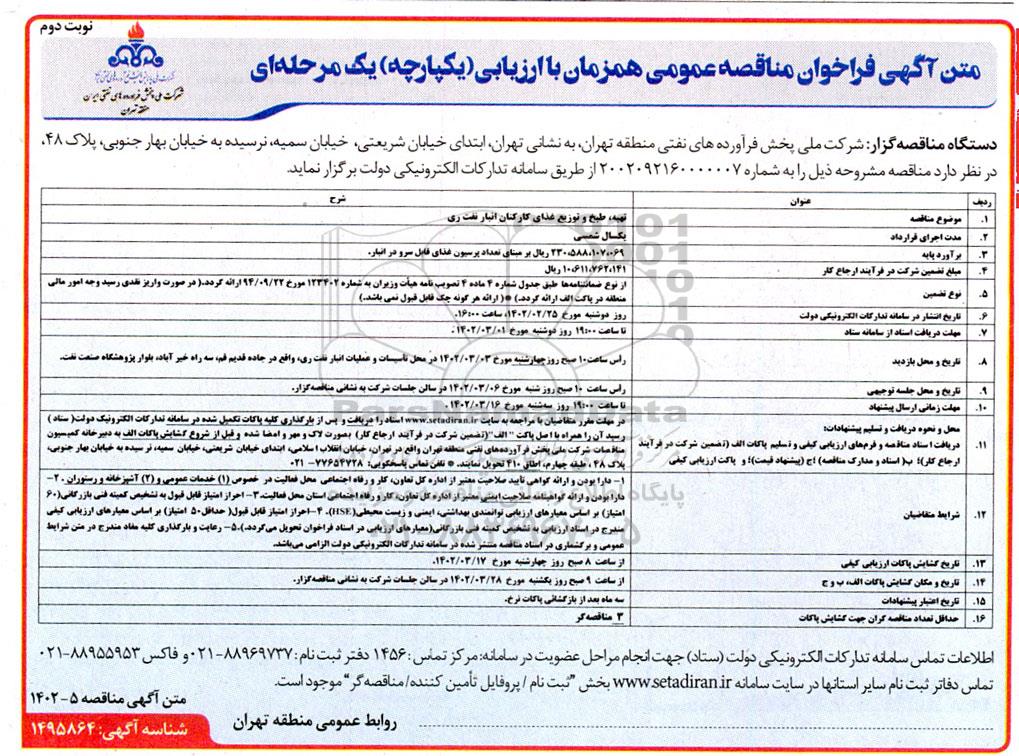 نوبت دوم
شرکت ملی پخش فرآورده های نفتی ایران
منطقه تهران
متن آگهی فراخوان مناقصه عمومی همزمان با ارزیابی (یکپارچه) یک مرحله‌ای
دستگاه مناقصه‌گزار: شرکت ملی پخش فرآورده های نفتی منطقه تهران، به نشانی تهران، ابتدای خیابان شریعتی، خیابان سمیه، نرسیده به خیابان بهار جنوبی، پلاک ۴۸،
در نظر دارد مناقصه مشروحه ذیل را به شماره ۲۰۰۲۰۹۲۱۶۰۰۰۰۰۰۷ از طریق سامانه تدارکات الکترونیکی دولت برگزار نماید.
ردیف عنوان شرح
۱. موضوع مناقصه تهیه، طبخ و توزیع غذای کارکنان انبار نفت ری
۲. مدت اجرای قرارداد یکسال شمسی
۳. برآورد پایه ۲۳۰،۵۸۸،۱۰۷،۰۶۹ ریال بر مبنای تعداد پرسیون غذای قابل سرو در انبار.
۴. مبلغ تضمین شرکت در فرآیند ارجاع کار ۱۰،۶۱۱،۷۶۲،۱۴۱ ریال
۵. نوع تضمین از نوع ضمانتنامه‌ها طبق جدول شماره ۴ ماده ۴ تصویب نامه هیأت وزیران به شماره ۱۲۳۴۰۲ مورخ ۹۴/۰۹/۲۲ ارائه گردد.( در صورت واریز نقدی رسید وجه امور مالی
منطقه در پاکت الف ارائه گردد.) *( ارائه هر گونه چک قابل قبول نمی باشد.)
۶. تاریخ انتشار در سامانه تدارکات الکترونیکی دولت روز دوشنبه مورخ ۱۴۰۲/۰۲/۲۵، ساعت ۱۶:۰۰.
۷. مهلت دریافت اسناد از سامانه ستاد تا ساعت ۱۹:۰۰ روز دوشنبه مورخ ۱۴۰۲/۰۳/۰۱.
۸. تاریخ و محل بازدید رأس ساعت ۱۰ صبح روز چهارشنبه مورخ ۱۴۰۲/۰۳/۰۳ در محل تأسیسات و عملیات انبار نفت ری، واقع در جاده قدیم قم، سه راه خیر آباد، بلوار پژوهشگاه صنعت نفت.
۹. تاریخ و محل جلسه توجیهی رأس ساعت ۱۰ صبح روز شنبه مورخ ۱۴۰۲/۰۳/۰۶ در سالن جلسات شرکت به نشانی مناقصه‌گزار.
۱۰. مهلت زمانی ارسال پیشنهاد تا ساعت ۱۹:۰۰ روز سه‌شنبه مورخ ۱۴۰۲/۰۳/۱۶.
۱۱. محل و نحوه دریافت و تسلیم پیشنهادات:
دریافت اسناد مناقصه و فرم‌های ارزیابی کیفی و تسلیم پاکات الف (تضمین شرکت در فرآیند
ارجاع کار)؛ ب( اسناد و مدارک مناقصه) ؛ج (پیشنهاد قیمت)؛ و پاکت ارزیابی کیفی
در مهلت مقرر متقاضیان با مراجعه به سایت www.setadiran.ir اسناد را دریافت و پس از بارگذاری کلیه پاکات تکمیل شده در سامانه تدارکات الکترونیک دولت( ستاد )
رسید آن را همراه با اصل پاکت "الف"(تضمین شرکت در فرآیند ارجاع کار) بصورت لاک و مهر و امضا شده و قبل از شروع گشایش پاکات الف به دبیرخانه کمیسیون
مناقصات شرکت ملی پخش فرآورده‌های نفتی منطقه تهران واقع در تهران، خیابان انقلاب اسلامی، ابتدای خیابان شریعتی، خیابان سمیه، نرسیده به خیابان بهار جنوبی،
پلاک ۴۸، طبقه چهارم، اطاق ۴۱۰ تحویل نمایند. * تلفن تماس پاسخگویی: ۷۷۶۵۴۷۲۸ -۰۲۱
۱۲. شرایط متقاضیان ۱- دارا بودن و ارائه گواهی تأیید صلاحیت معتبر از اداره کل تعاون، کار و رفاه اجتماعی محل فعالیت در خصوص (۱) خدمات عمومی و (۲) آشپزخانه و رستوران . ۲-
دارا بودن و ارائه گواهینامه صلاحیت ایمنی معتبر از اداره کل تعاون، کار و رفاه اجتماعی استان محل فعالیت.۳- احراز امتیاز قابل قبول به تشخیص کمیته فنی بازرگانی(۶۰
امتیاز) بر اساس معیارهای ارزیابی توانمندی بهداشتی، ایمنی و زیست محیطی(HSE). ۴-احراز امتیاز قابل قبول( حداقل۵۰ امتیاز) بر اساس معیارهای ارزیابی کیفی
مندرج در اسناد ارزیابی به تشخیص کمیته فنی بازرگانی(معیارهای ارزیابی در اسناد فراخوان تحویل می‌گردد.).۵- رعایت و بارگذاری کلیه مفاد مندرج در متن شرایط
عمومی و برگشماری در اسناد مناقصه منتشر شده در سامانه تدارکات الکترونیکی دولت الزامی می‌باشد.
۱۳. تاریخ گشایش پاکات ارزیابی کیفی از ساعت ۸ صبح روز چهارشنبه مورخ ۱۴۰۲/۰۳/۱۷.
۱۴. تاریخ و مکان گشایش پاکات الف، ب و ج از ساعت ۹ صبح روز یکشنبه مورخ ۱۴۰۲/۰۳/۲۸ در سالن جلسات شرکت به نشانی مناقصه‌گزار.
۱۵. تاریخ اعتبار پیشنهادات سه ماه بعد از بازگشائی پاکات نرخ.
۱۶. حداقل تعداد مناقصه گران جهت گشایش پاکات ۳ مناقصه‌گر
اطلاعات تماس سامانه تدارکات الکترونیکی دولت (ستاد) جهت انجام مراحل عضویت در سامانه: مرکز تماس : ۱۴۵۶ دفتر ثبت نام : ۸۸۹۶۹۷۳۷-۰۲۱ و فاکس ۸۸۹۵۵۹۵۳-۰۲۱
تماس دفاتر ثبت نام سایر استانها در سایت سامانه www.setadiran.ir بخش "ثبت نام / پروفایل تأمین کننده/ مناقصه‌گر" موجود است.
متن آگهی مناقصه ۵-۱۴۰۲
روابط عمومی منطقه تهران
شناسه آگهی: ۱۴۹۵۸۶۴